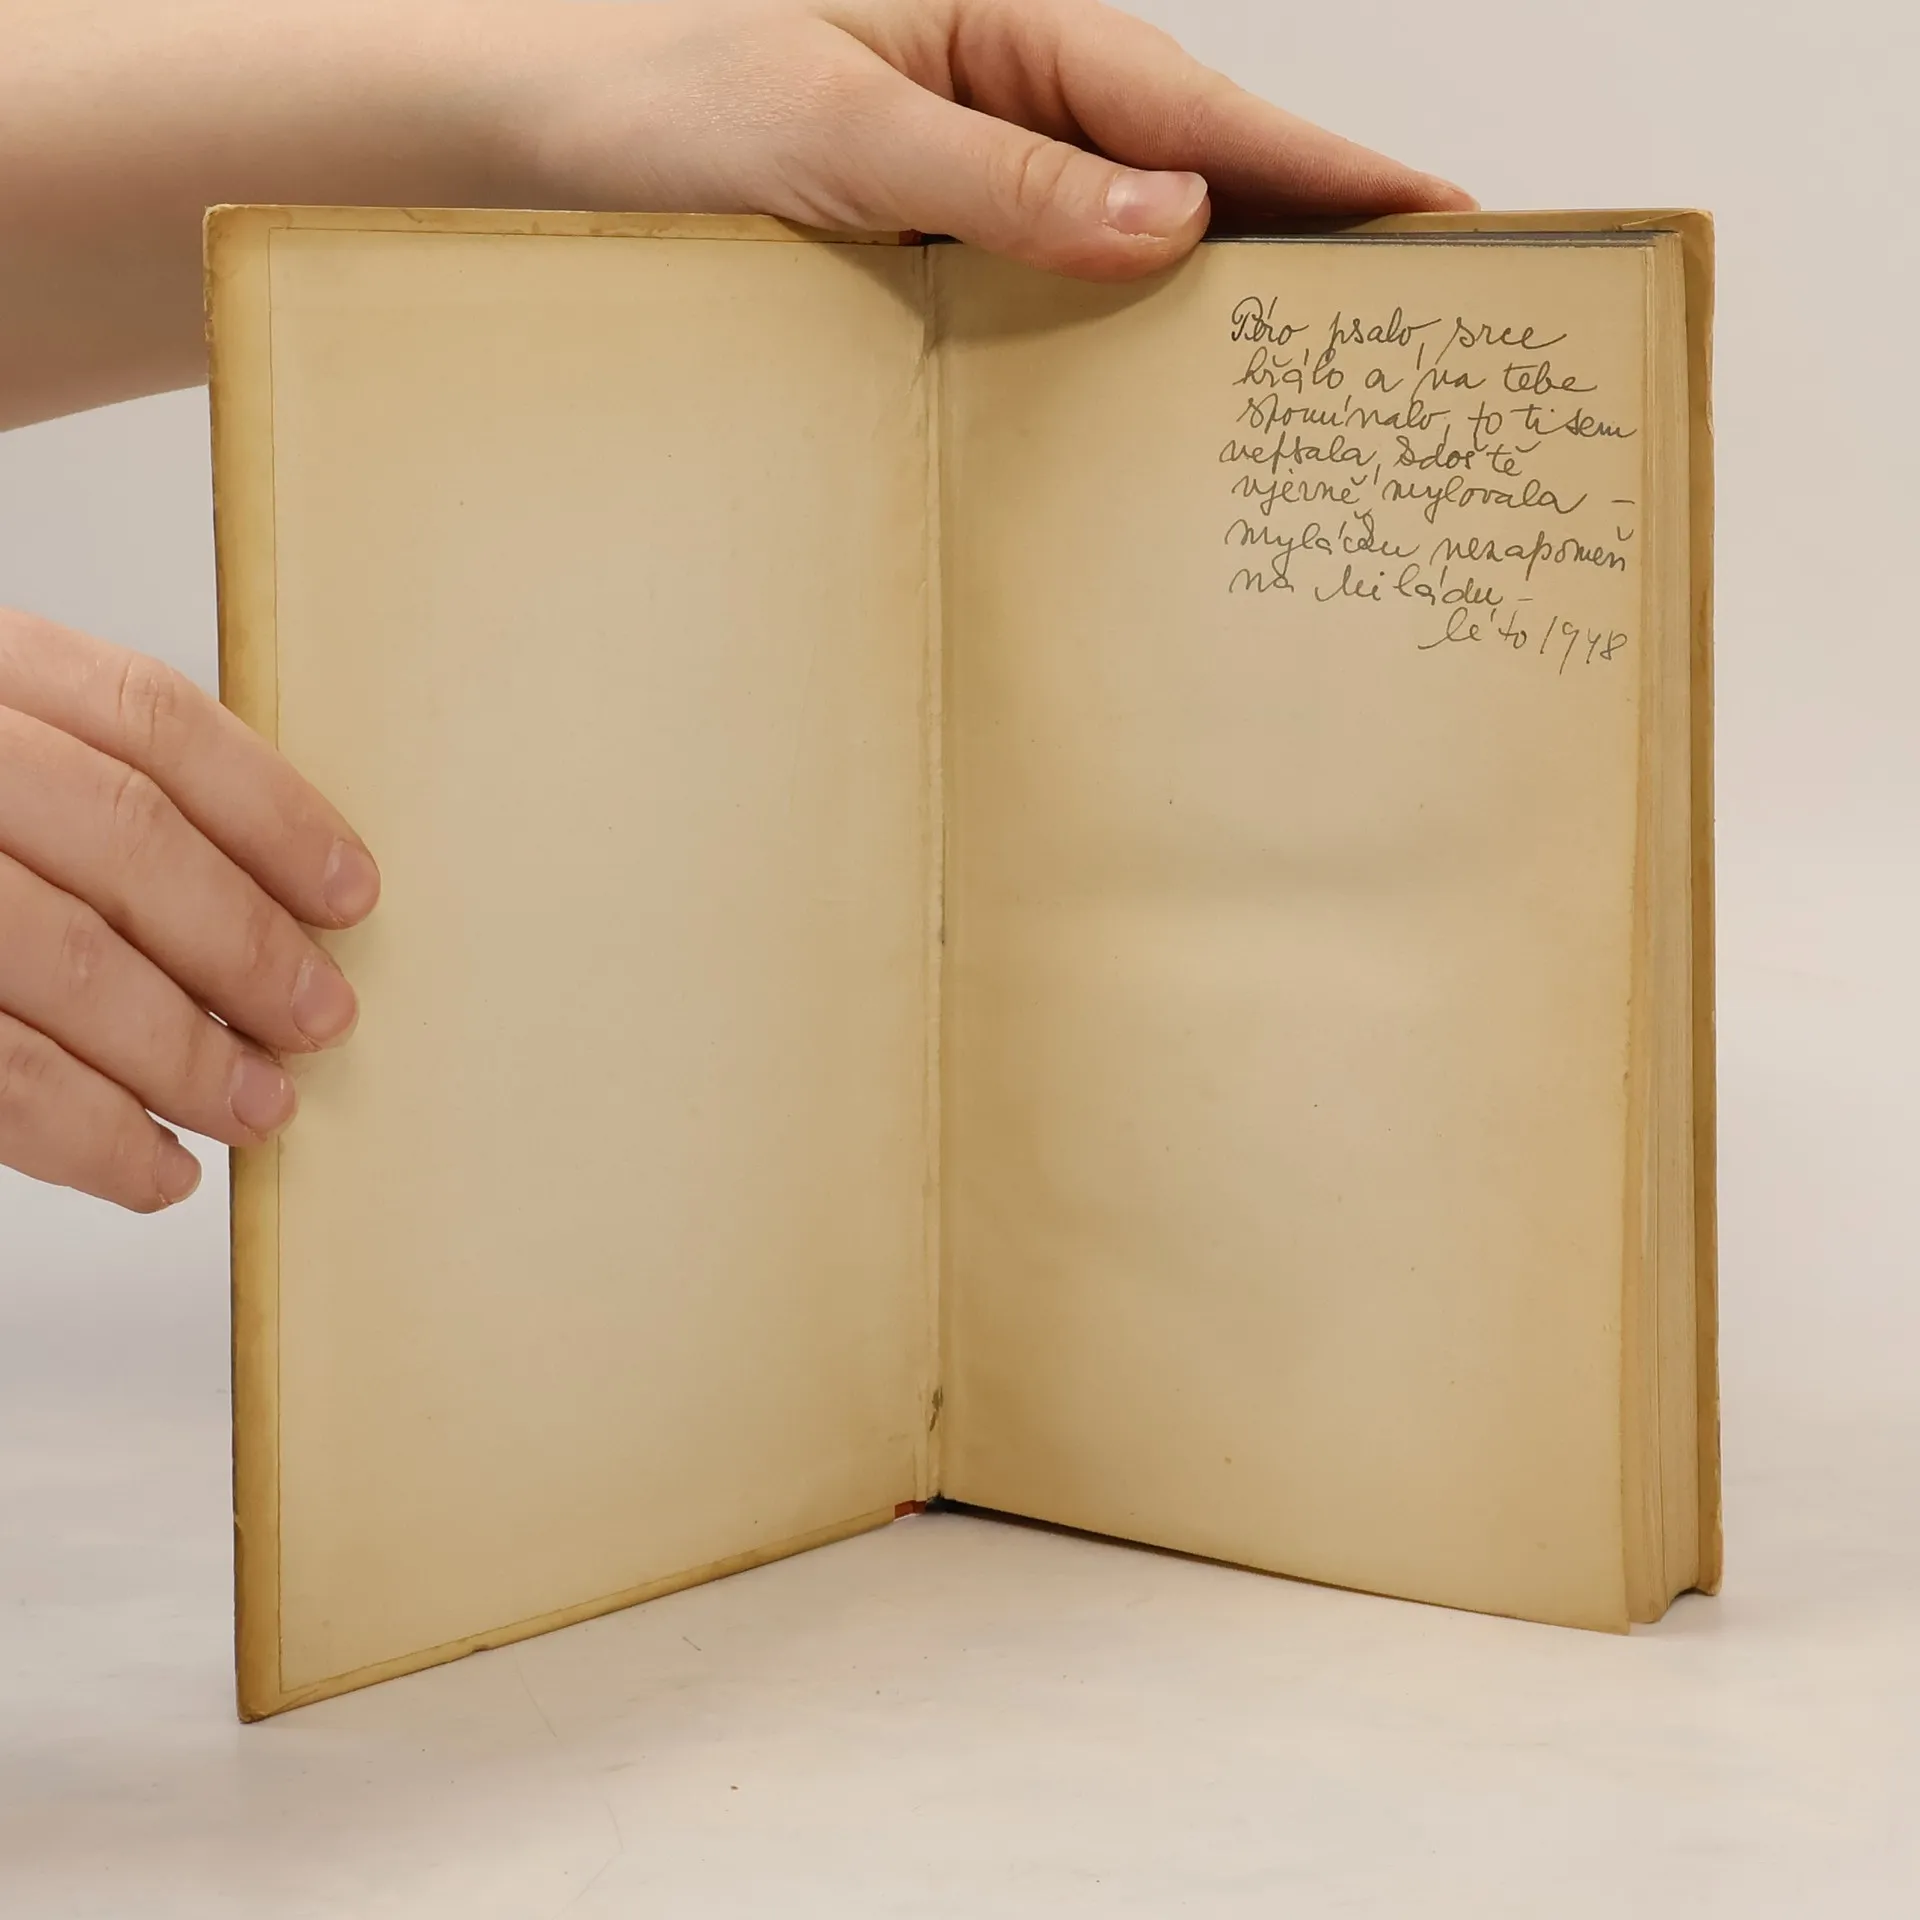 Péro psalo, srce
hřálo a na tebe
spomínalo, to ti sem
nepsala, sdoš tě
vjerně mylovala –
myláčku nezapomeň
na Miládu –
léto 1948